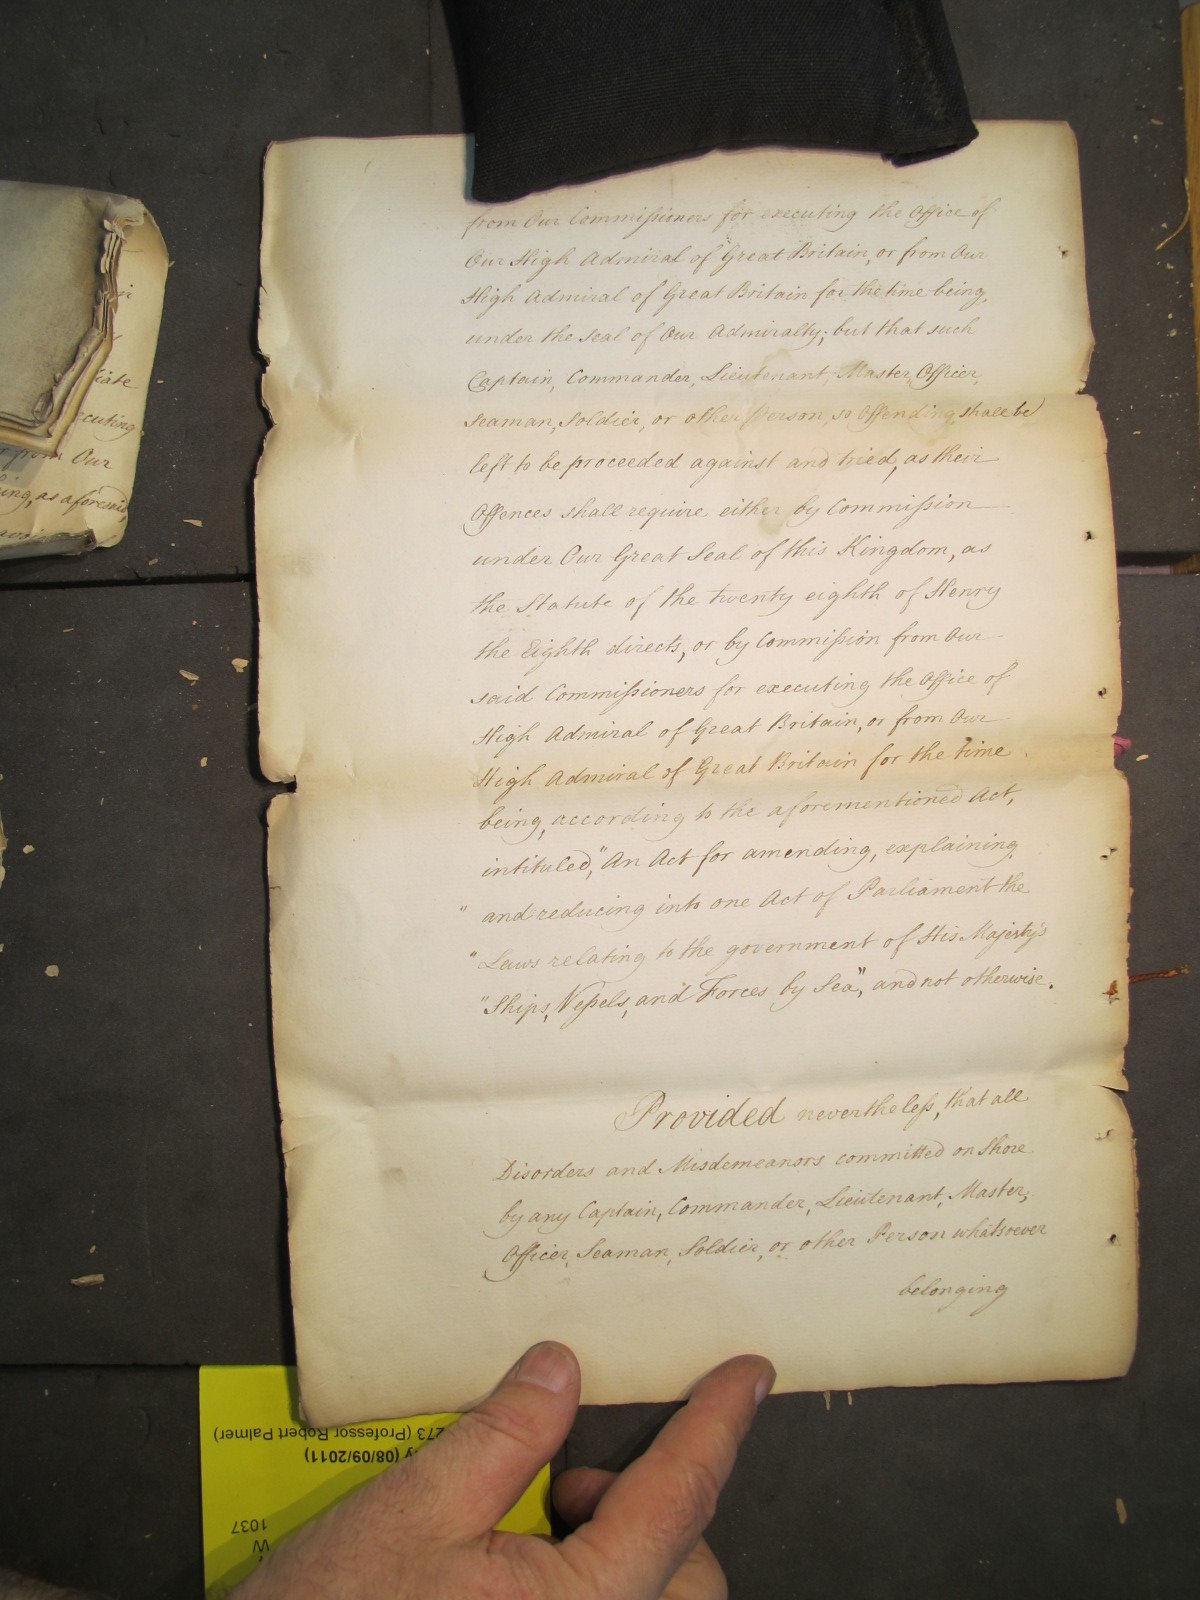 from Our Commissioners for executing the Office of
Our High Admiral of Great Britain, or from Our
High Admiral of Great Britain for the time being,
under the seal of Our Admiralty; but that such
Captain, Commander, Lieutenant, Master, Officer,
Seaman, Soldier, or other Person, so Offending, shall be
left to be proceeded against and tried, as their
Offences shall require either by Commission
under Our Great Seal of this Kingdom, as
the Statute of the twenty eighth of Henry
the Eighth directs, or by Commission from Our
said Commissioners for executing the Office of
High Admiral of Great Britain, or from Our
High Admiral of Great Britain for the time
being, according to the aforementioned Act,
intituled, "An Act for amending, explaining
" and reducing into one Act of Parliament the
" Laws relating to the government of His Majesty's
" Ships, Vessels, and Forces by Sea", and not otherwise.
Provided nevertheless, that all
Disorders and Misdemeanors committed on Shore
by any Captain, Commander, Lieutenant, Master,
Officer, Seaman, Soldier, or other Person whatsoever
belonging
cuting
from Our
ing, as aforesaid,
273 (Professor Robert Palmer)
(08/09/2011)
1037
W